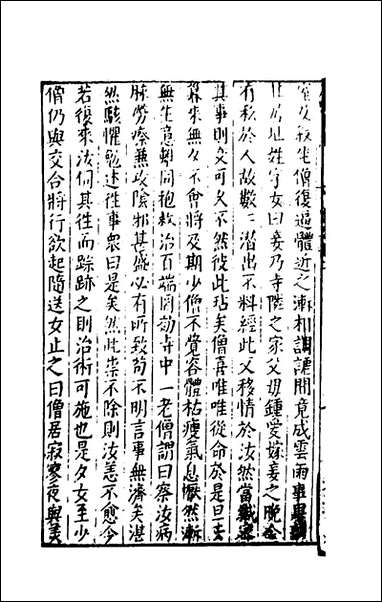 至夜寂坐僧復逼體近之漸相調謔閒竟成雲雨事與
其居址姓字女曰妾乃寺隣之家父母鍾愛嫁妾之晚今
有私於人故數數潛出不料經此又移情於汝然當緘密
其事則交可久不然彼此玷矣僧喜唯唯從命於是旦去
暮來無夕不會將及期少僧不覺容體枯瘦氣息懨然漸
無生意雖同袍救治百端罔効寺中一老僧謂曰察汝病
脉勞瘵兼攻陰邪甚盛必有所致苟不明言事無濟矣湛
然駭懼勉述往事衆曰是矣然此祟不除則汝恙不愈今
若復來汝伺其往而踪跡之則治術可施也是夕女至少
僧仍與交合將行欲起隨送女止之曰僧居寂寥夜與美